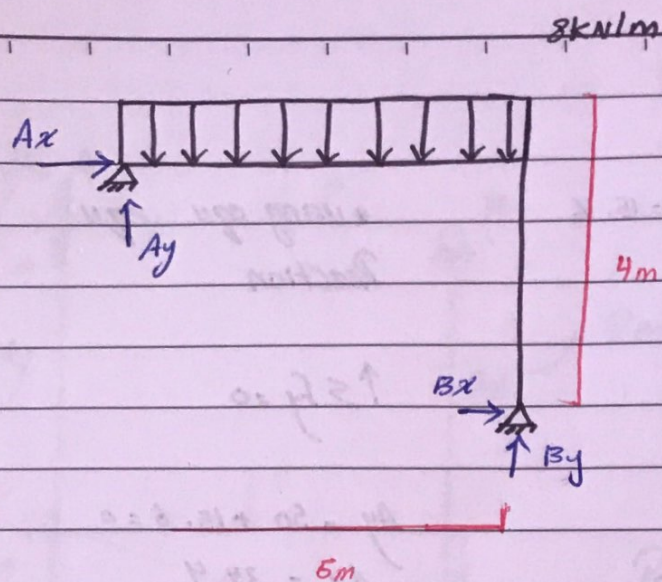 8kN/m
Ax
Ay
4m
Bx
By
5m